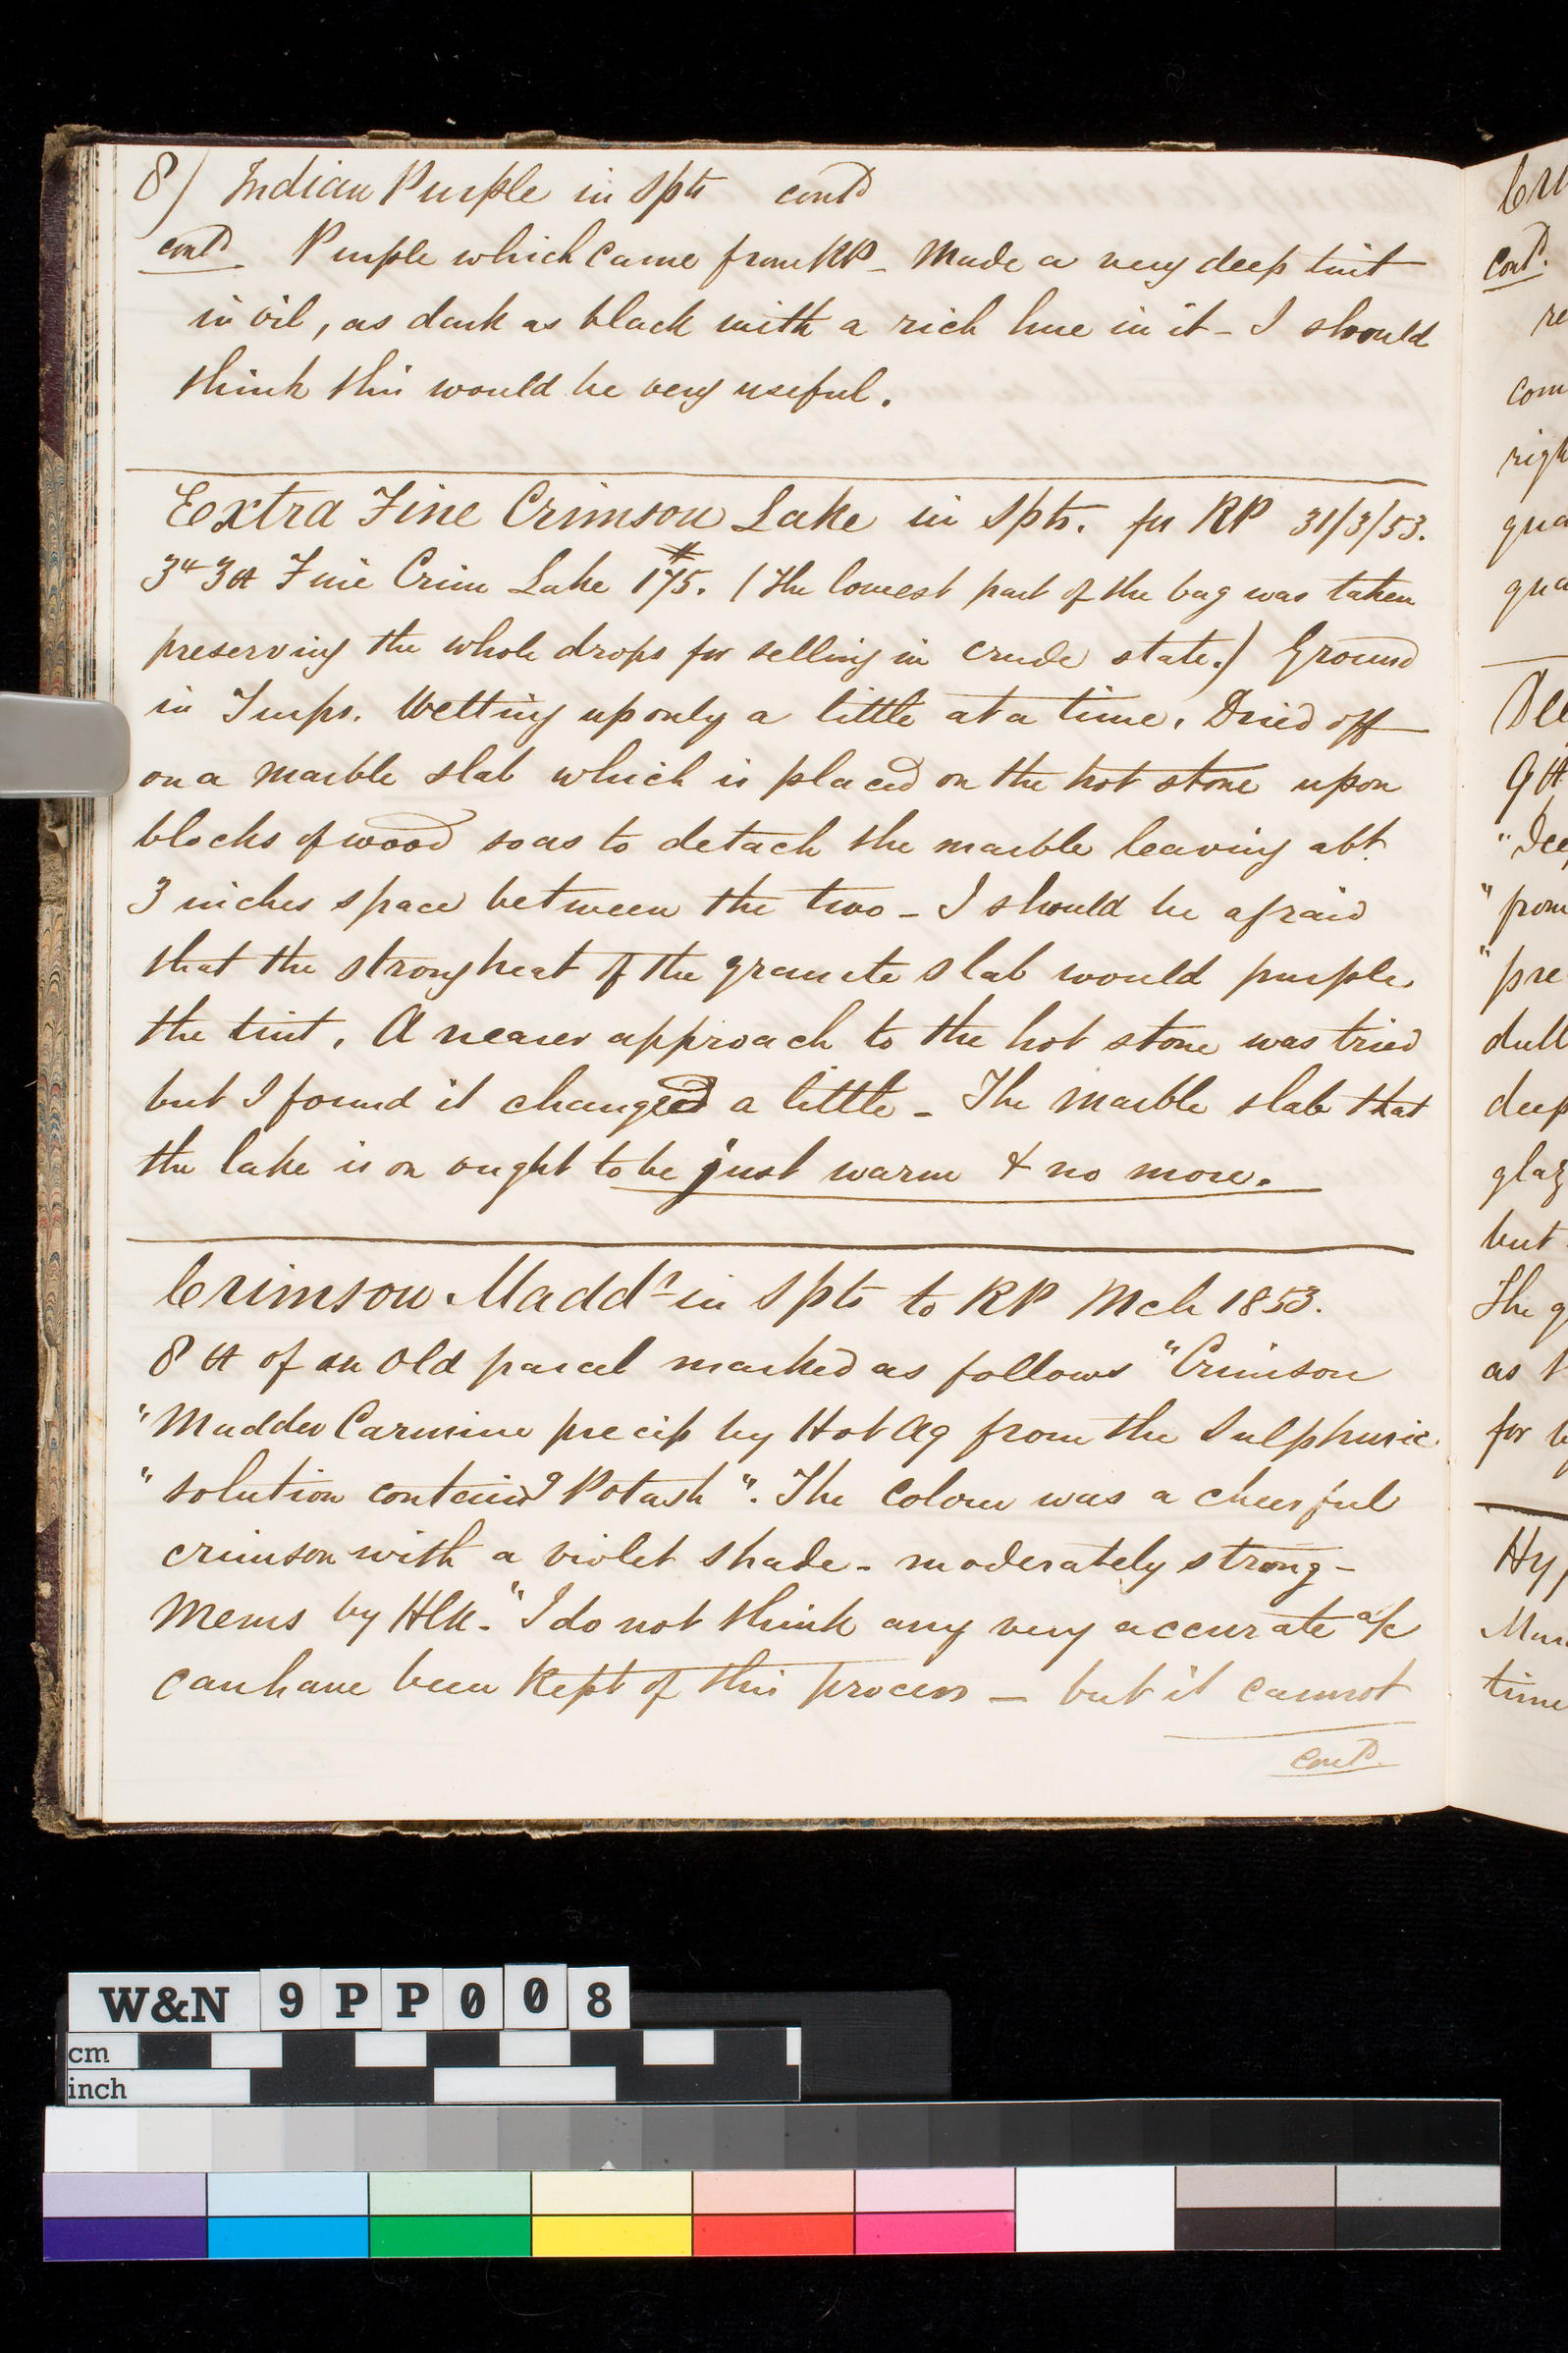 8) Indian Purple in Spts contd
contd. Purple which came from RP - Made a very deep tint
in oil, as dark as black with a rich hue in it - I should
think this would be very useful.
Extra Fine Crimson Lake in Spts. for RP 31/3/53.
Fine Crim Lake 175. (The lowest part of the bag was taken
preserving the whole drops for selling in crude state.) Ground
in Turps. Wetting up only a little at a time. Dried off
on a marble slab which is placed on the hot stone upon
blocks of wood so as to detach the marble leaving abt.
3 inches space between the two - I should be afraid
that the strong heat of the granite slab would purple
the tint. A nearer approach to the hot stone was tried
but I found it changed a little - The marble slab that
the lake is on ought to be just warm & no more.
Crimson Maddr in Spts to RP Mch 1853.
8 ℔ of an old parcel marked as follows "Crimson
"Madder Carmine precip by Hot Aq from the Sulphuric
"solution containg Potash". The Colour was a cheerful
crimson with a violet shade - moderately strong -
Mems by "I do not think any very accurate a/c
can have been Kept of this process — but it cannot
contd.
Cont.
re
com
righ
qua
qua
9 ℔
"from
"pre
dull
deep
glaz
but
The q
as
for
Hy
time
W&N 9PP008
cm
inch